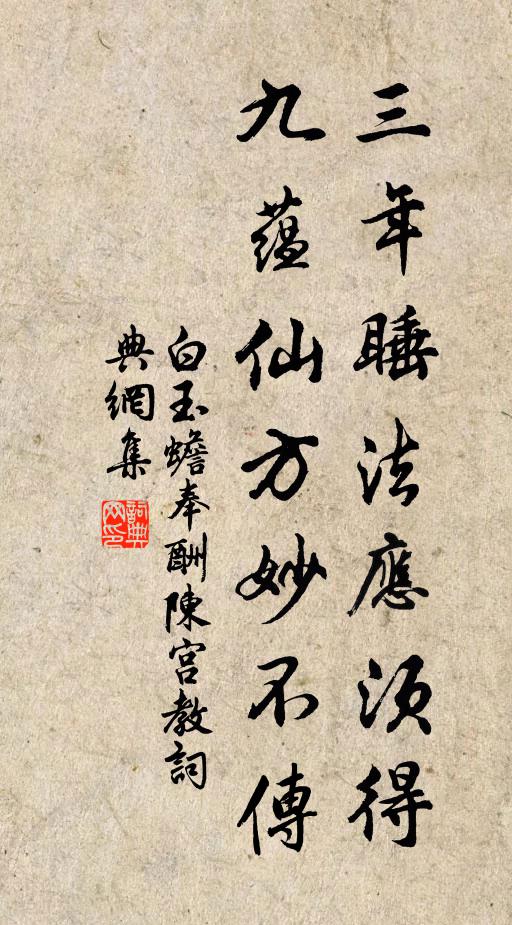 三年睡法應須得
九蘊仙方妙不傳
白玉蟾奉酬陳宫教詞
典網集
詞典网印